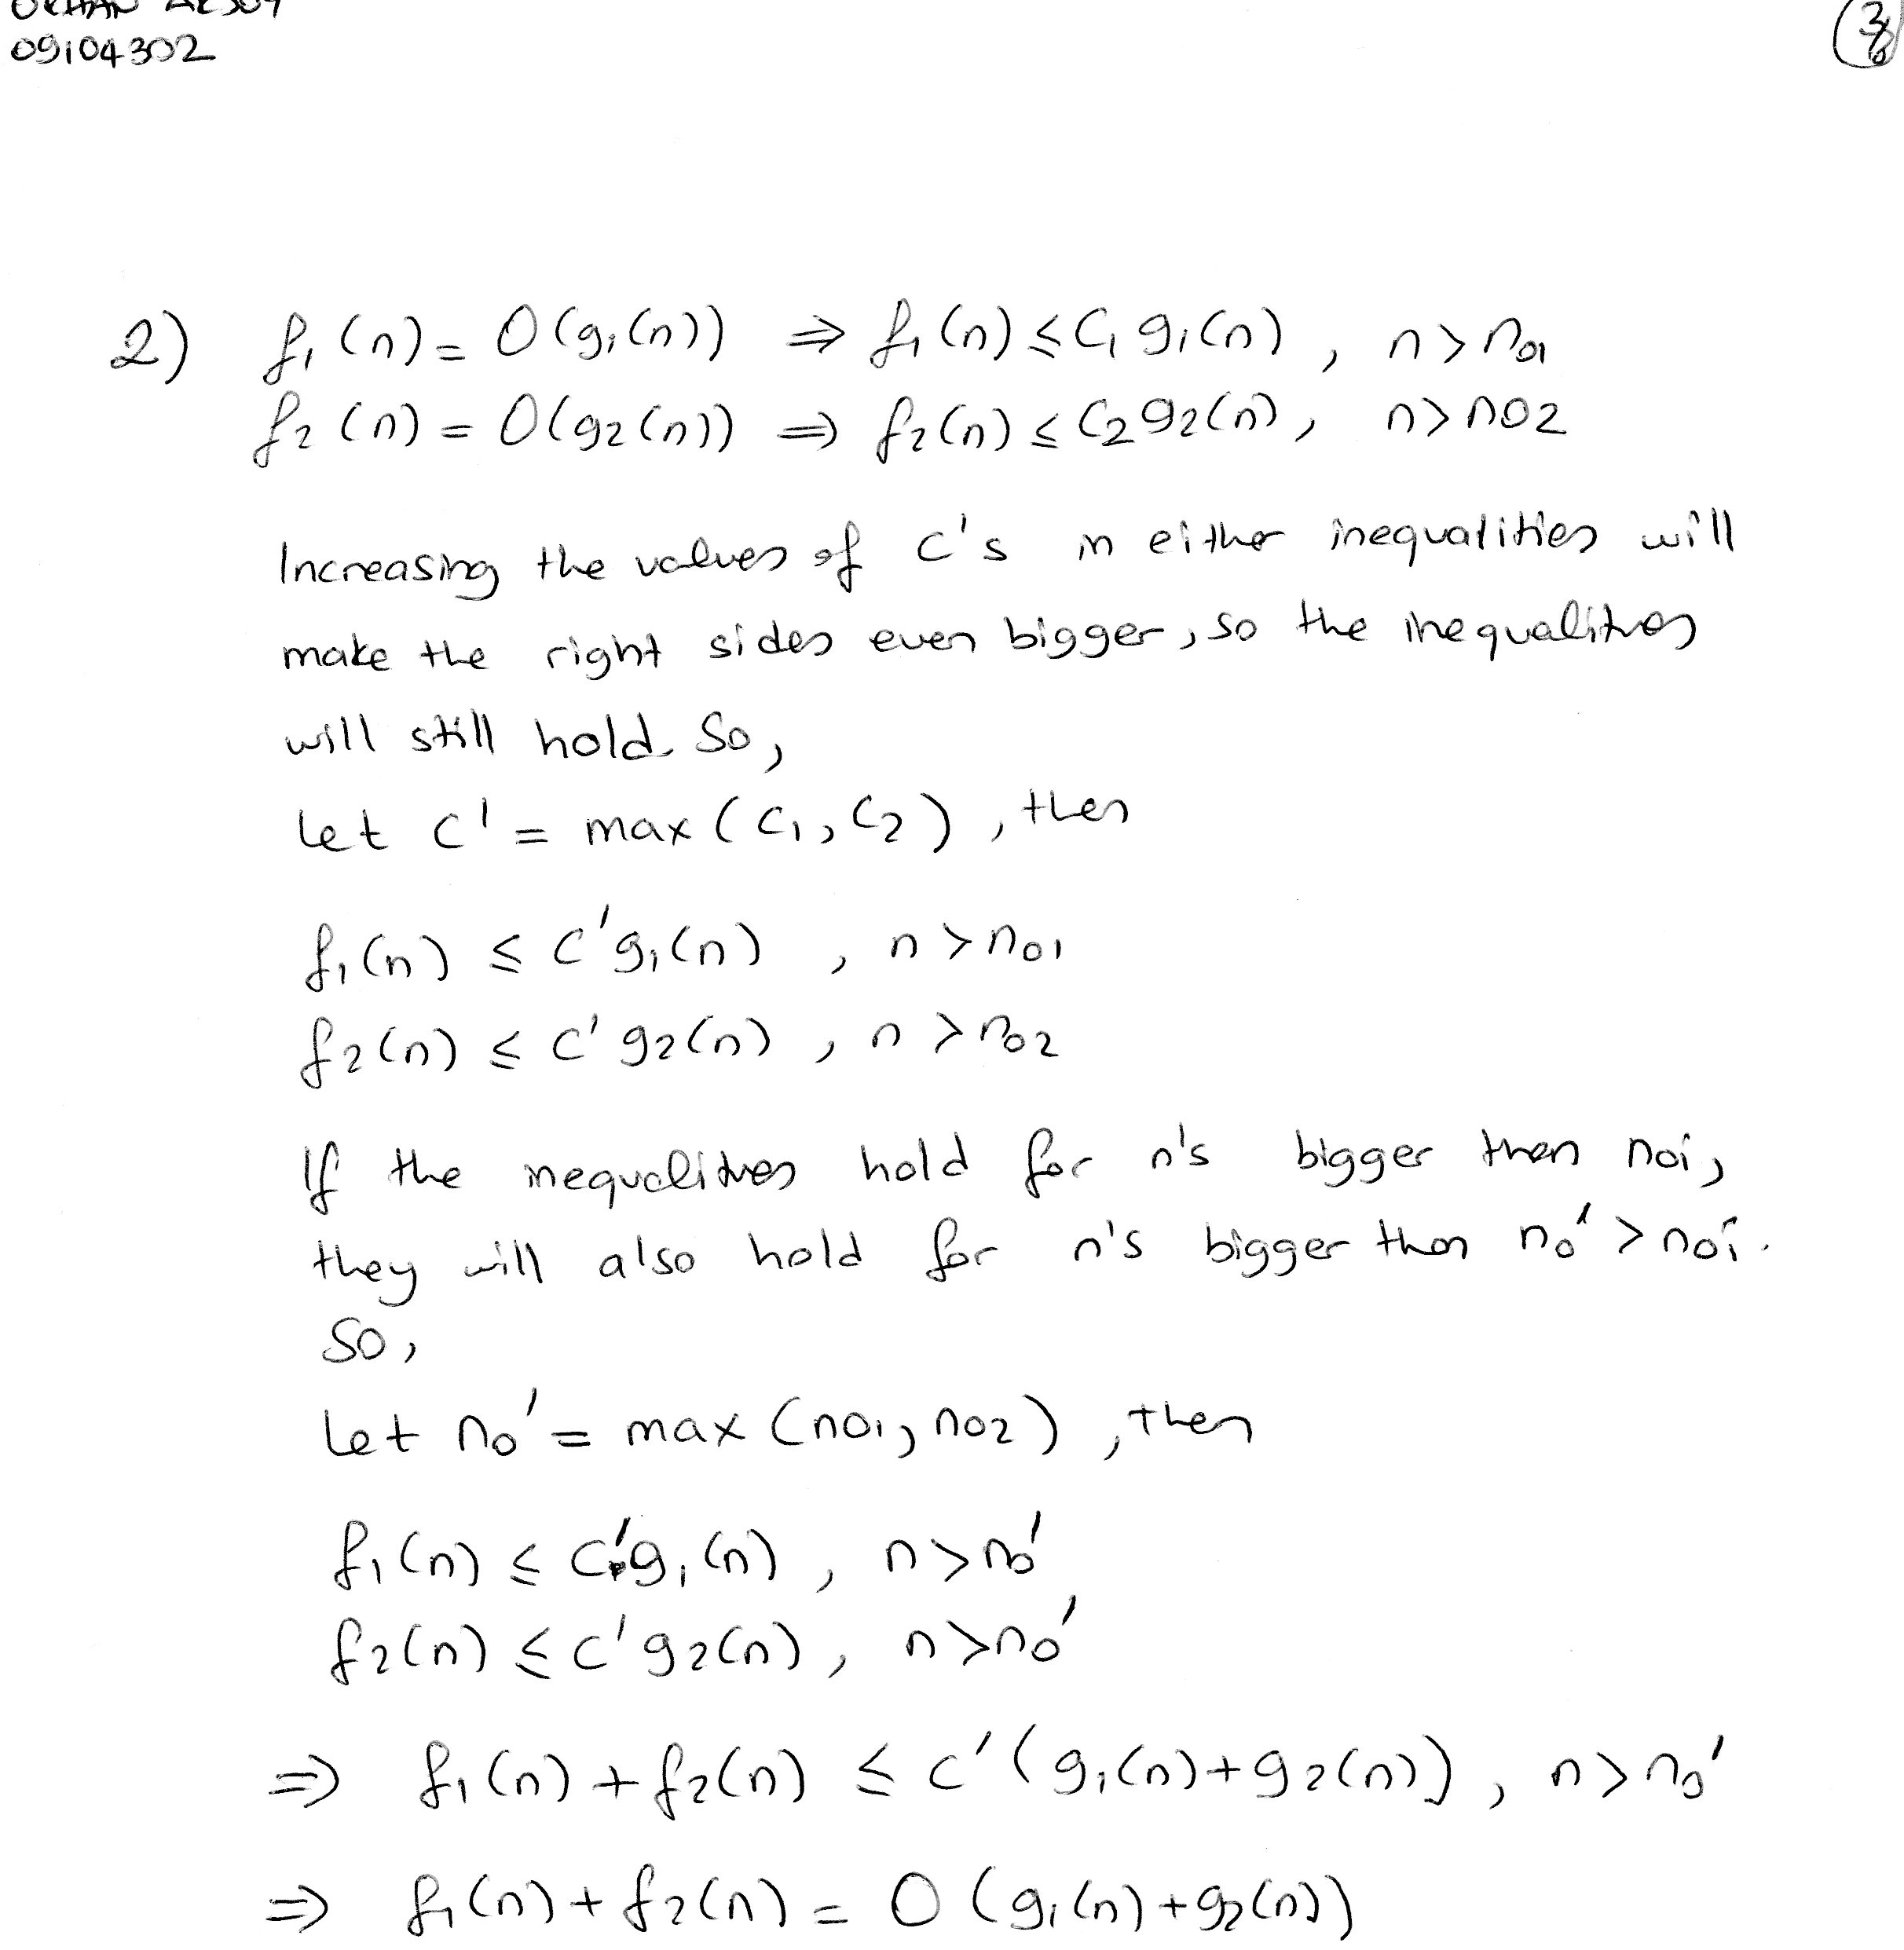 09104302
2) f₁(n) = O(g₁(n)) ⇒ f₁(n) ≤ C₁ g₁(n) , n > n₀₁
f₂(n) = O(g₂(n)) ⇒ f₂(n) ≤ C₂ g₂(n), n > n₀₂
Increasing the values of c's in either inequalities will
make the right sides even bigger, so the inequalities
will still hold. So,
Let c' = max (C₁, C₂) , then
f₁(n) ≤ c' g₁(n) , n > n₀₁
f₂(n) ≤ c' g₂(n) , n > n₀₂
If the inequalities hold for n's bigger then n₀i,
they will also hold for n's bigger than n₀' > n₀i.
So,
Let n₀' = max (n₀₁, n₀₂) , then
f₁(n) ≤ c' g₁(n) , n > n₀'
f₂(n) ≤ c' g₂(n) , n > n₀'
⇒ f₁(n) + f₂(n) ≤ c' (g₁(n) + g₂(n)) , n > n₀'
⇒ f₁(n) + f₂(n) = O (g₁(n) + g₂(n))